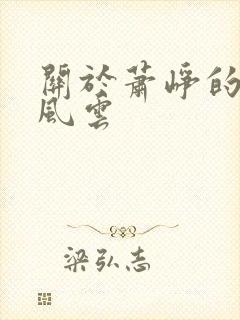 關於蕭崢的
風雲
梁弘志